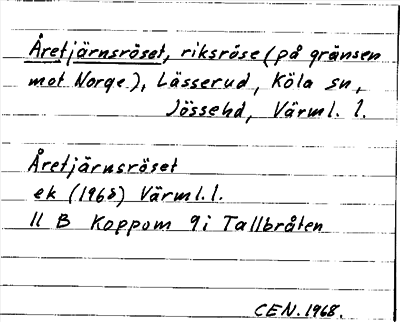 Åretjärnsröset, riksröse (på gränsen
mot Norge), Lässerud, Köla sn,
Jössehd, Värml. l.
Åretjärnsröset
ek (1968) Värml. l.
11 B Koppom 9i Tallbråten
CEN. 1968.